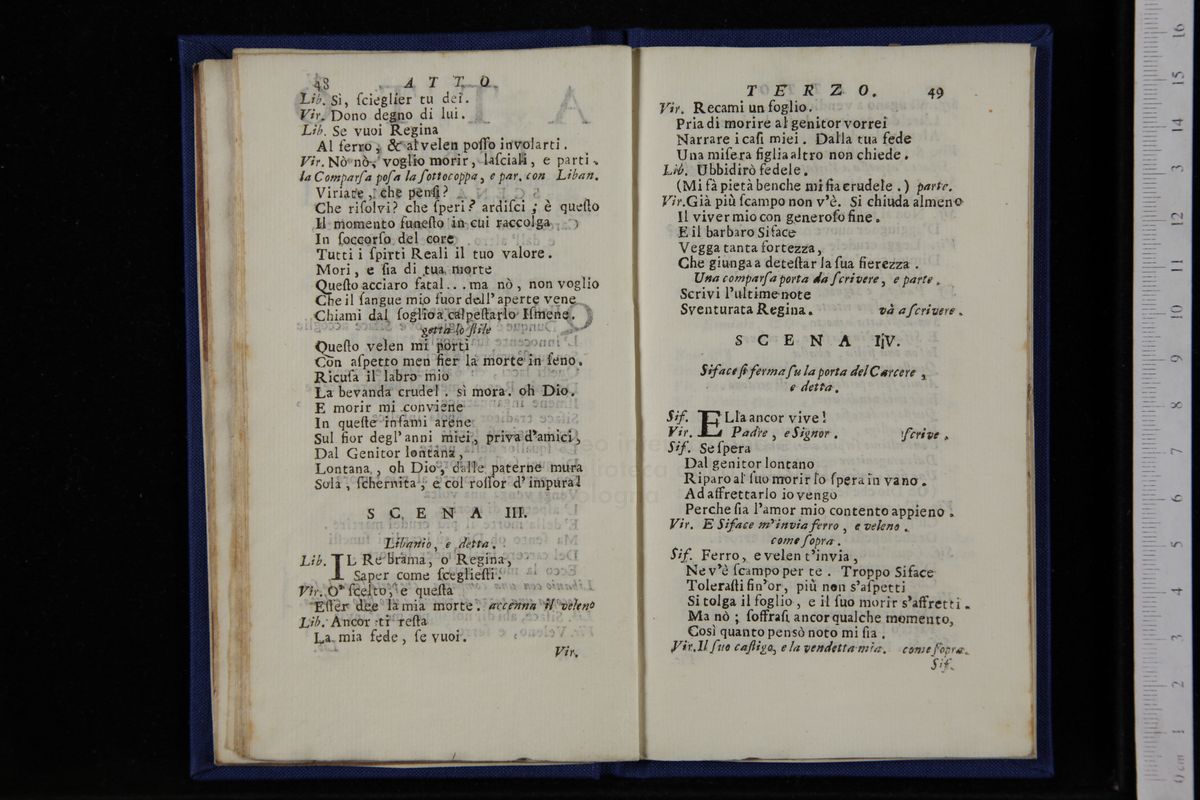 48 ATTO
Lib. Sì, ſcieglier tu dei.
Vir. Dono degno di lui.
Lib. Se vuoi Regina
Al ferro, & al velen poſſo involarti.
Vir. Nò nò, voglio morir, laſciali, e parti.
la Comparſa poſa la ſottocoppa, e par. con Liban.
Viriate, che penſi?
Che riſolvi? che ſperi? ardiſci; è queſto
Il momento funeſto in cui raccolga
In ſoccorſo del core
Tutti i ſpirti Reali il tuo valore.
Mori, e ſia di tua morte
Queſto acciaro fatal... ma nò, non voglio
Che il ſangue mio fuor dell'aperte vene
Chiami dal ſoglio a calpeſtarlo Iſmene.
getta lo ſtile
Queſto velen mi porti
Con aſpetto men fier la morte in ſeno.
Ricuſa il labro mio
La bevanda crudel. sì mora. oh Dio.
E morir mi conviene
In queſte infami arene
Sul fior degl'anni miei, priva d'amici,
Dal Genitor lontana,
Lontana, oh Dio, dalle paterne mura
Sola, ſchernita, e col roſſor d'impura!
SCENA III.
Libanio, e detta.
Lib. IL Rè brama, o Regina,
Saper come ſceglieſti.
Vir. O' ſcelto, e queſta
Eſſer dee la mia morte. accenna il veleno
Lib. Ancor ti reſta
La mia fede, ſe vuoi.
Vir.
TERZO. 49
Vir. Recami un foglio.
Pria di morire al genitor vorrei
Narrare i caſi miei. Dalla tua fede
Una miſera figlia altro non chiede.
Lib. Ubbidirò fedele.
(Mi fà pietà benche mi ſia crudele.) parte.
Vir. Già più ſcampo non v'è. Si chiuda almeno
Il viver mio con generoſo fine.
E il barbaro Siface
Vegga tanta fortezza,
Che giunga a deteſtar la ſua fierezza.
Una comparſa porta da ſcrivere, e parte.
Scrivi l'ultime note
Sventurata Regina. và a ſcrivere.
SCENA IV.
Siface ſi ferma ſu la porta del Carcere,
e detta.
Sif. ELla ancor vive!
Vir. Padre, e Signor. ſcrive.
Sif. Se ſpera
Dal genitor lontano
Riparo al ſuo morir lo ſpera in vano.
Ad affrettarlo io vengo
Perche ſia l'amor mio contento appieno.
Vir. E Siface m'invia ferro, e veleno.
come ſopra.
Sif. Ferro, e velen t'invia,
Ne v'è ſcampo per te. Troppo Siface
Toleraſti fin'or, più non s'aſpetti
Si tolga il foglio, e il ſuo morir s'affretti.
Ma nò; ſoffraſi ancor qualche momento,
Così quanto pensò noto mi ſia.
Vir. Il ſuo caſtigo, e la vendetta mia. come ſopra.
Sif.